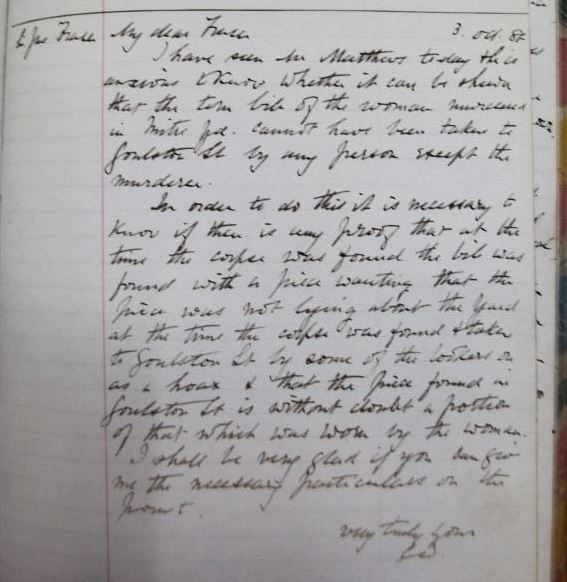 to Jas Fraser My dear Fraser 3. Oct. 88
I have seen Mr Matthews today He is
anxious to know whether it can be shewn
that the torn bib of the woman murdered
in Mitre Sq. cannot have been taken to
Goulston St by any person except the
murderer.
In order to do this it is necessary to
know if there is any proof that at the
time the corpse was found the bib was
found with a piece wanting that the
piece was not lying about the yard
at the time the corpse was found & taken
to Goulston St by some of the lookers on
as a hoax & that the piece found in
Goulston St is without doubt a portion
of that which was worn by the woman.
I shall be very glad if you can give
me the necessary particulars on the
point.
very truly yours
CW.